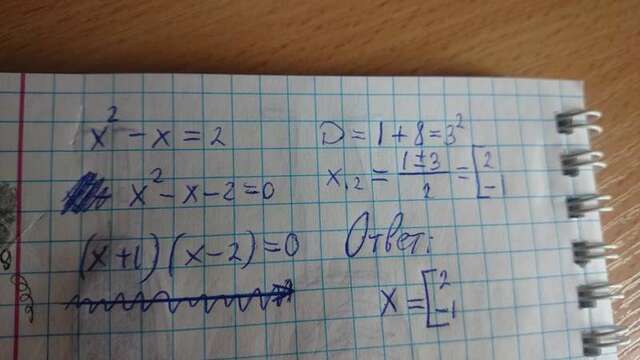 x² - x = 2
x² - x - 2 = 0
(x + 1)(x - 2) = 0
D = 1 + 8 = 3²
x₁,₂ = (1 ± 3)/2 = [2 -1
Ответ:
x = [2 -1